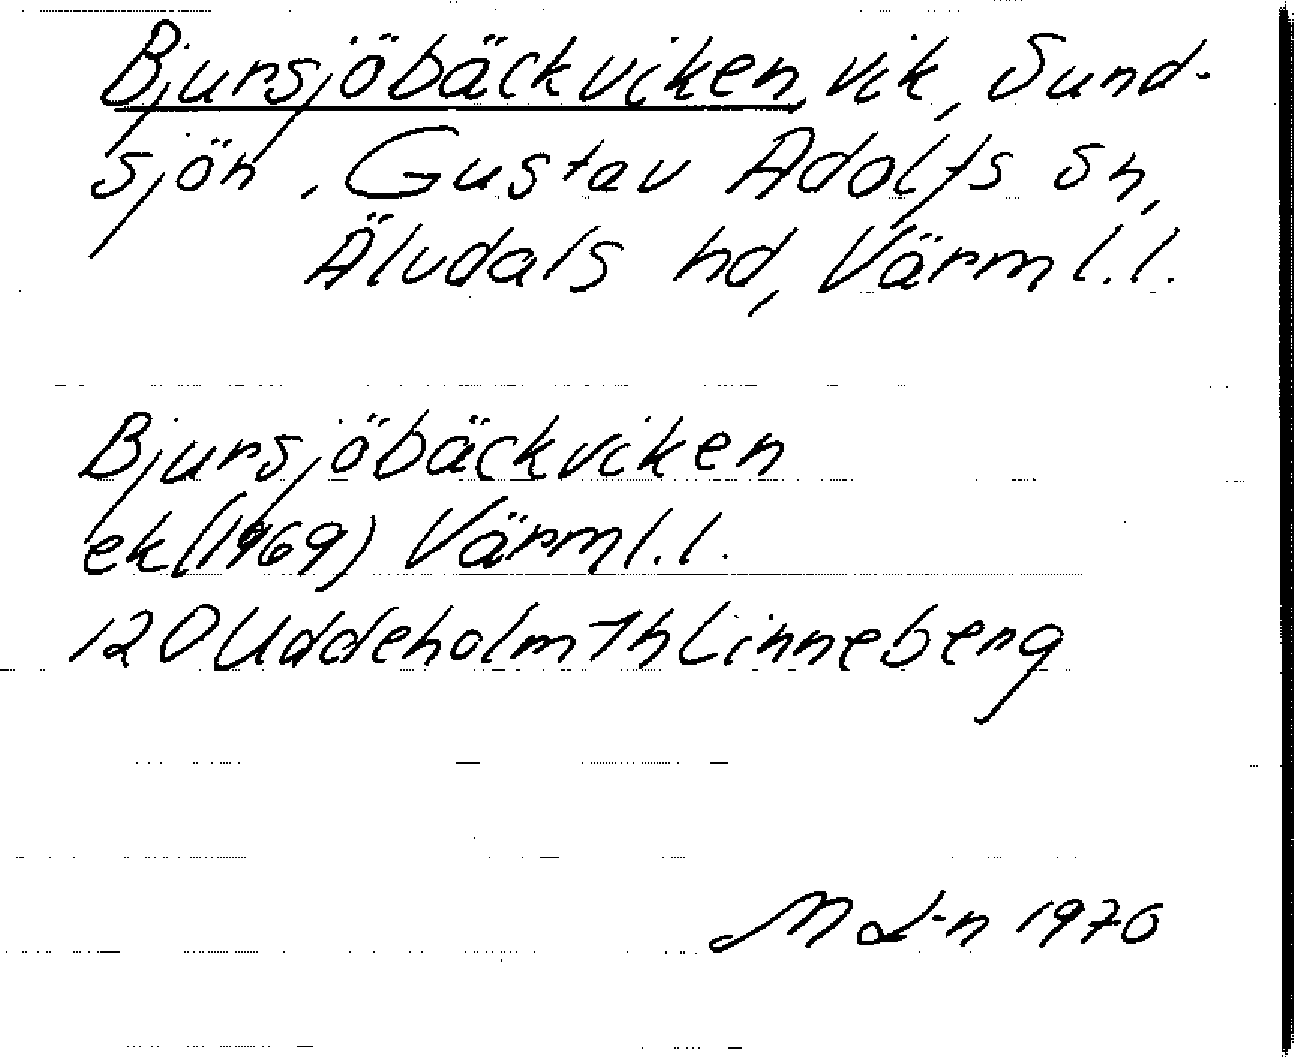 Bjursjöbäckviken, vik, Sund-
sjön, Gustav Adolfs sn,
Älvdals hd, Värml.l.
Bjursjöbäckviken
ek (1969) Värml.l.
12D Uddeholm 7h Linneberg
M L-n 1970